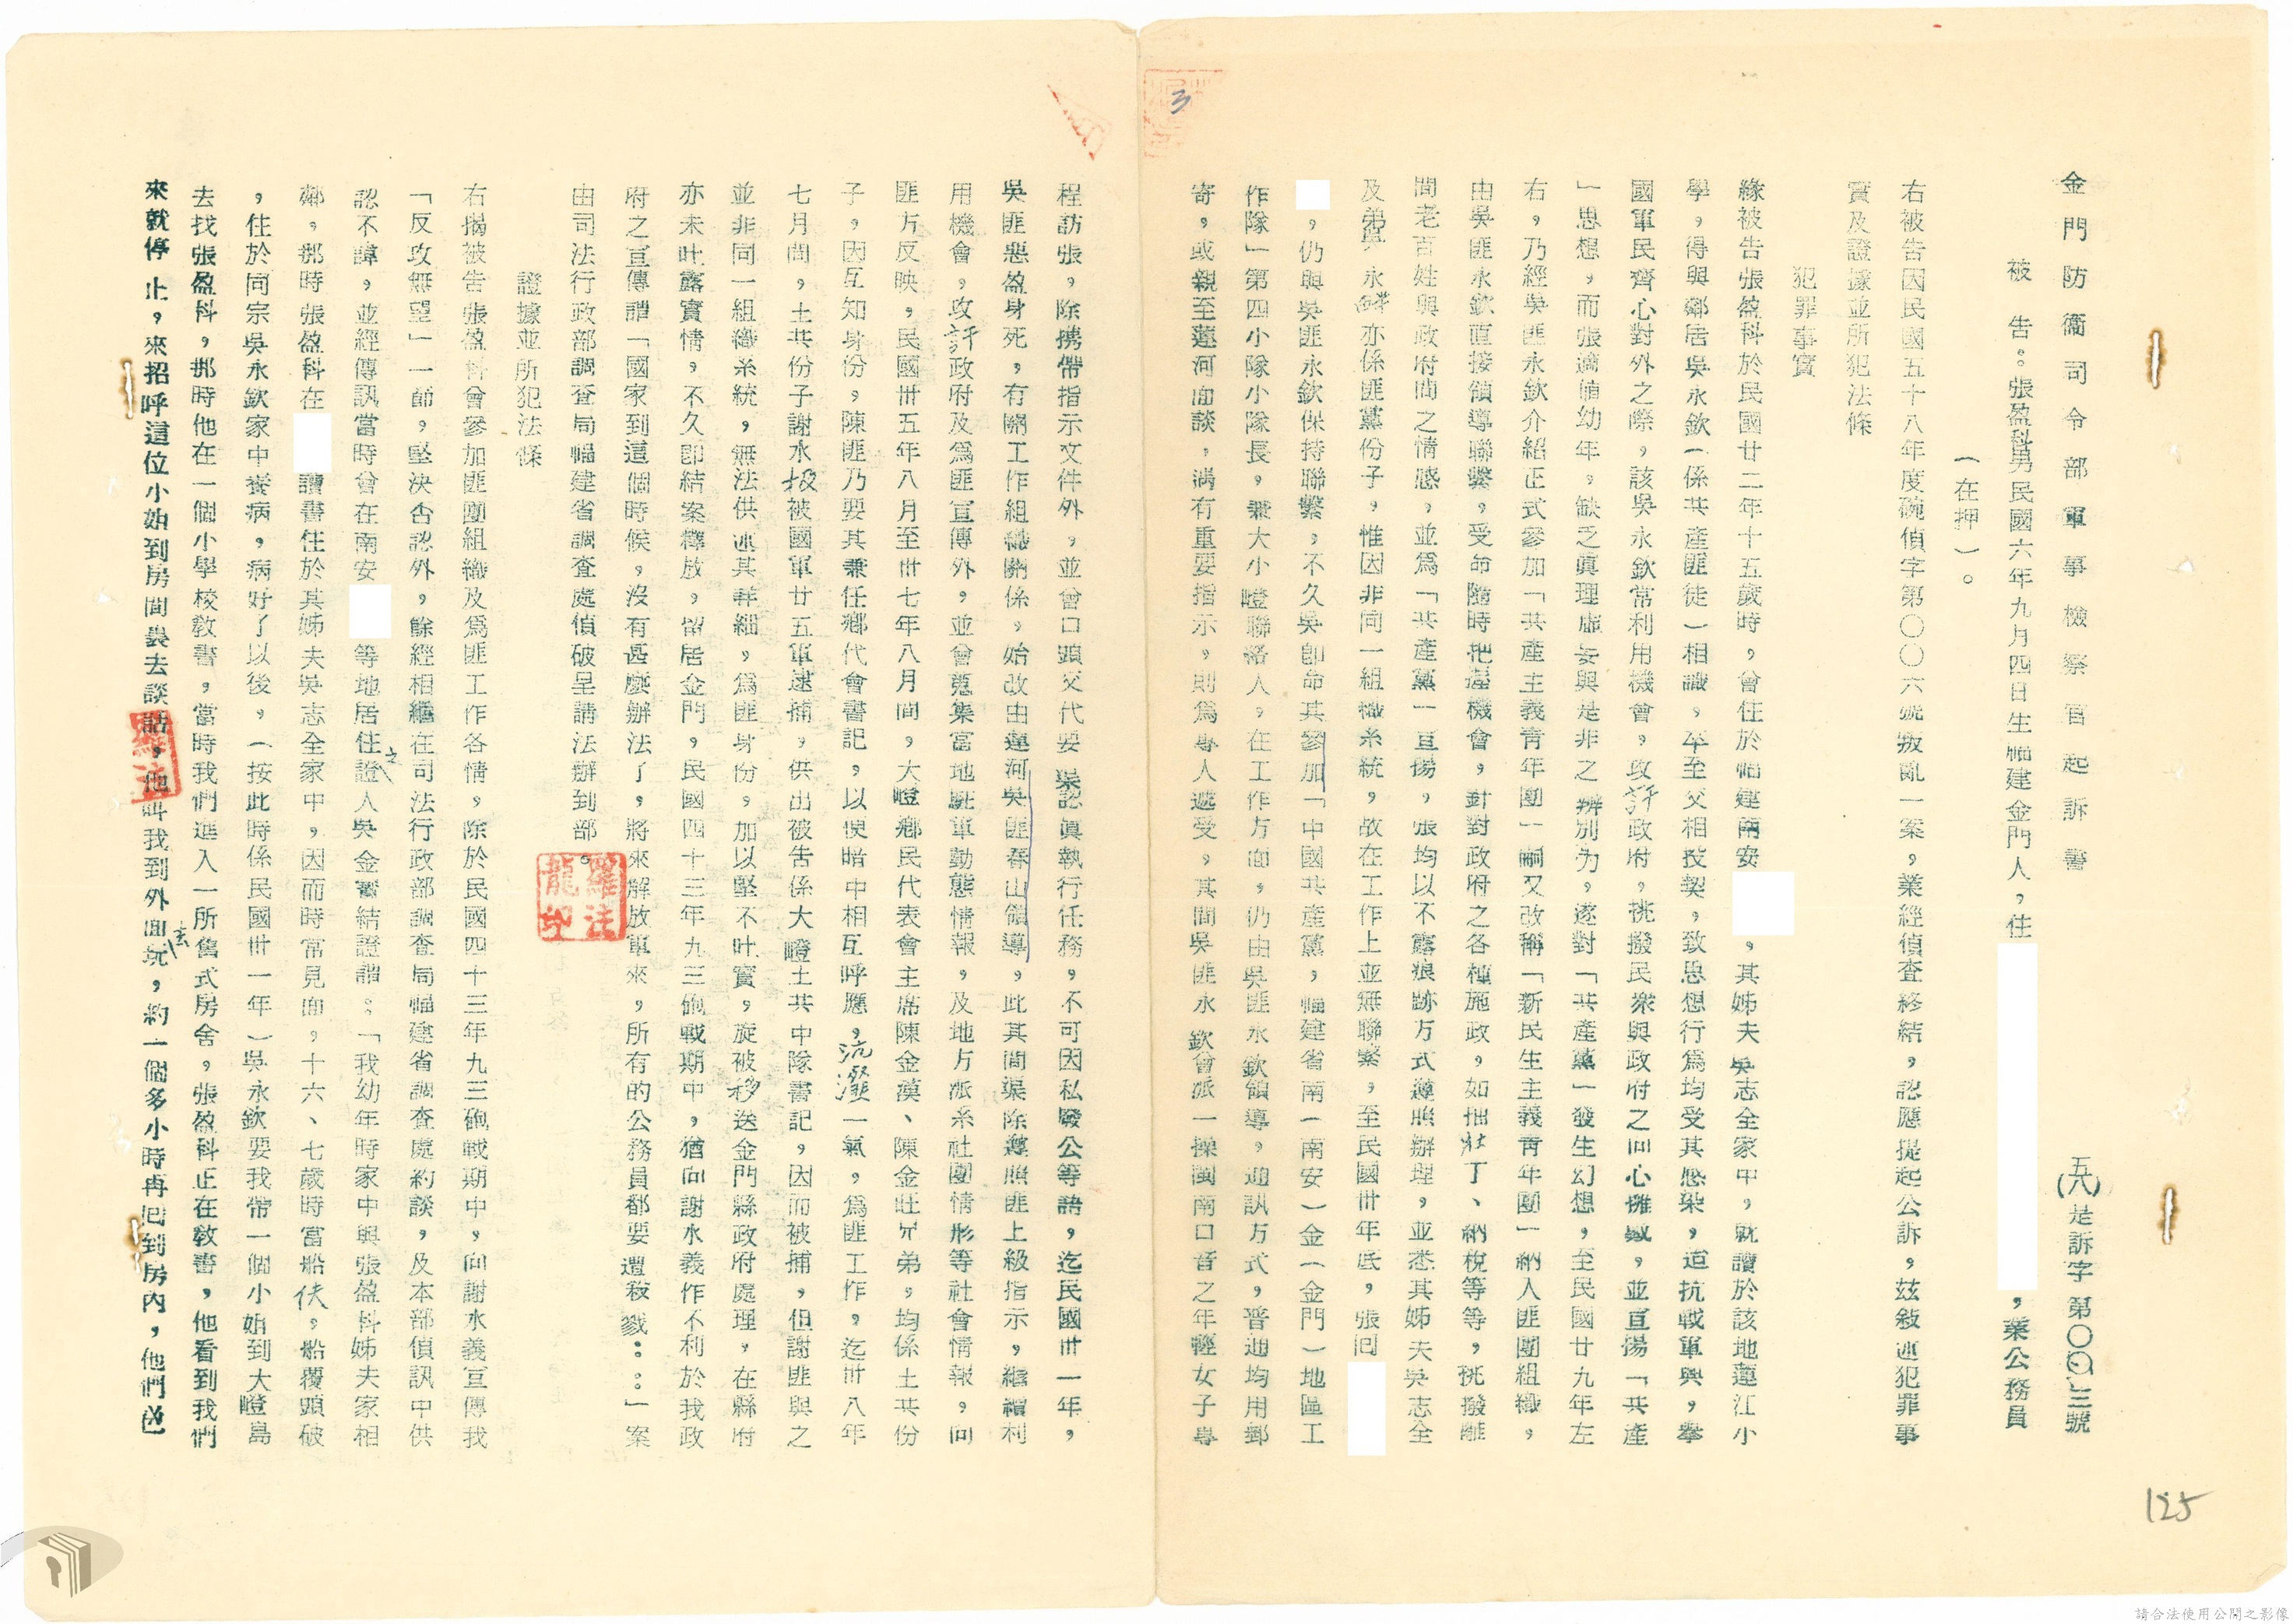 金門防衞司令部軍事檢察官起訴書
(五八)是訴字第〇〇三號
被告：張盈科男民國六年九月四日生福建金門人，住
，業公務員
（在押）。
右被告因民國五十八年度碗偵字第〇〇六號叛亂一案，業經偵查終結，認應提起公訴，玆敍述犯罪事
實及證據並所犯法條
犯罪事實
緣被告張盈科於民國廿二年十五歲時，曾住於福建南安
，其姊夫吳志全家中，就讀於該地蓮江小
學，得與鄰居吳永欽（係共產匪徒）相識，至父相投契，致思想行為均受其感染，迨抗戰軍興，舉
國軍民齊心對外之際，該吳永欽常利用機會，攻訐政府，挑撥民衆與政府之向心擁戴，並宣揚「共產
」思想，而張適値幼年，缺乏眞理虛妄與是非之辨別力，遂對「共產黨」發生幻想，至民國廿九年左
右，乃經吳匪永欽介紹正式參加「共產主義靑年團」嗣又改稱「新民生主義靑年團」納入匪團組織，
由吳匪永欽直接領導聯繫，受命隨時把握機會，針對政府之各種施政，如抽壯丁、納稅等等，挑撥離
間老百姓與政府間之情感，並為「共產黨」宣揚，張均以不露痕跡方式遵照辦理，並悉其姊夫吳志全
及弟吳永 亦係匪黨份子，惟因非同一組織系統，故在工作上並無聯繫，至民國卅年底，張回
，仍與吳匪永欽保持聯繫，不久吳卽命其參加「中國共產黨，福建省南（南安）金（金門）地區工
作隊」第四小隊小隊長，兼大小嶝聯絡人，在工作方面，仍由吳匪永欽領導，通訊方式，普通均用郵
寄，或親至蓮河面談，滿有重要指示，則為專人遞受，其間吳匪永欽曾派一操閩南口音之年輕女子專
3
程訪張，除携帶指示文件外，並曾口頭交代要渠認眞執行任務，不可因私廢公等語，迄民國卅一年，
吳匪惡盈身死，有關工作組織關係，始改由蓮河吳匪春山領導，此其間渠除遵照匪上級指示，繼續利
用機會，攻訐政府及為匪宣傳外，並曾蒐集當地駐軍動態情報，及地方派系社團情形等社會情報，向
匪方反映，民國卅五年八月至卅七年八月間，大嶝鄉民代表會主席陳金漢、陳金旺兄弟，均係土共份
子，因互知身份，陳匪乃要其兼任鄉代會書記，以便暗中相互呼應，沆瀣一氣，為匪工作，迄卅八年
七月間，土共份子謝水扱被國軍廿五軍逮捕，供出被告係大嶝土共中隊書記，因而被捕，但謝匪與之
並非同一組織系統，無法供述其詳細，為匪身份，加以堅不吐實，旋被移送金門縣政府處理，在縣府
亦未吐露實情，不久卽結案釋放，留居金門，民國四十三年九三砲戰期中，猶向謝水義作不利於我政
府之宣傳謂「國家到這個時候，沒有甚麼辦法了，將來解放軍來，所有的公務員都要遭殺戮：：」案
由司法行政部調查局福建省調查處偵破呈請法辦到部。
羅法龍印
證據並所犯法條
右揭被告張盈科曾參加匪團組織及為匪工作各情，除於民國四十三年九三砲戰期中，向謝水義宣傳我
「反攻無望」一節，堅決否認外，餘經相繼在司法行政部調查局福建省調查處約談，及本部偵訊中供
認不諱，並經傳訊當時曾在南安
等地居住之證人吳金 結證謂：「我幼年時家中與張盈科姊夫家相
鄰，那時張盈科在
讀書住於其姊夫吳志全家中，因而時常見面，十六、七歲時當船伕，船覆頭破
，住於同宗吳永欽家中養病，病好了以後，（按此時係民國卅一年）吳永欽要我帶一個小姐到大嶝島
去找張盈科，那時他在一個小學校敎書，當時我們進入一所舊式房舍，張盈科正在敎書，他看到我們
來就停止，來招呼這位小姐到房間裏去談話，他叫我到外面玩去，約一個多小時再囘到房內，他們還
羅法
125
請合法使用公開之影像